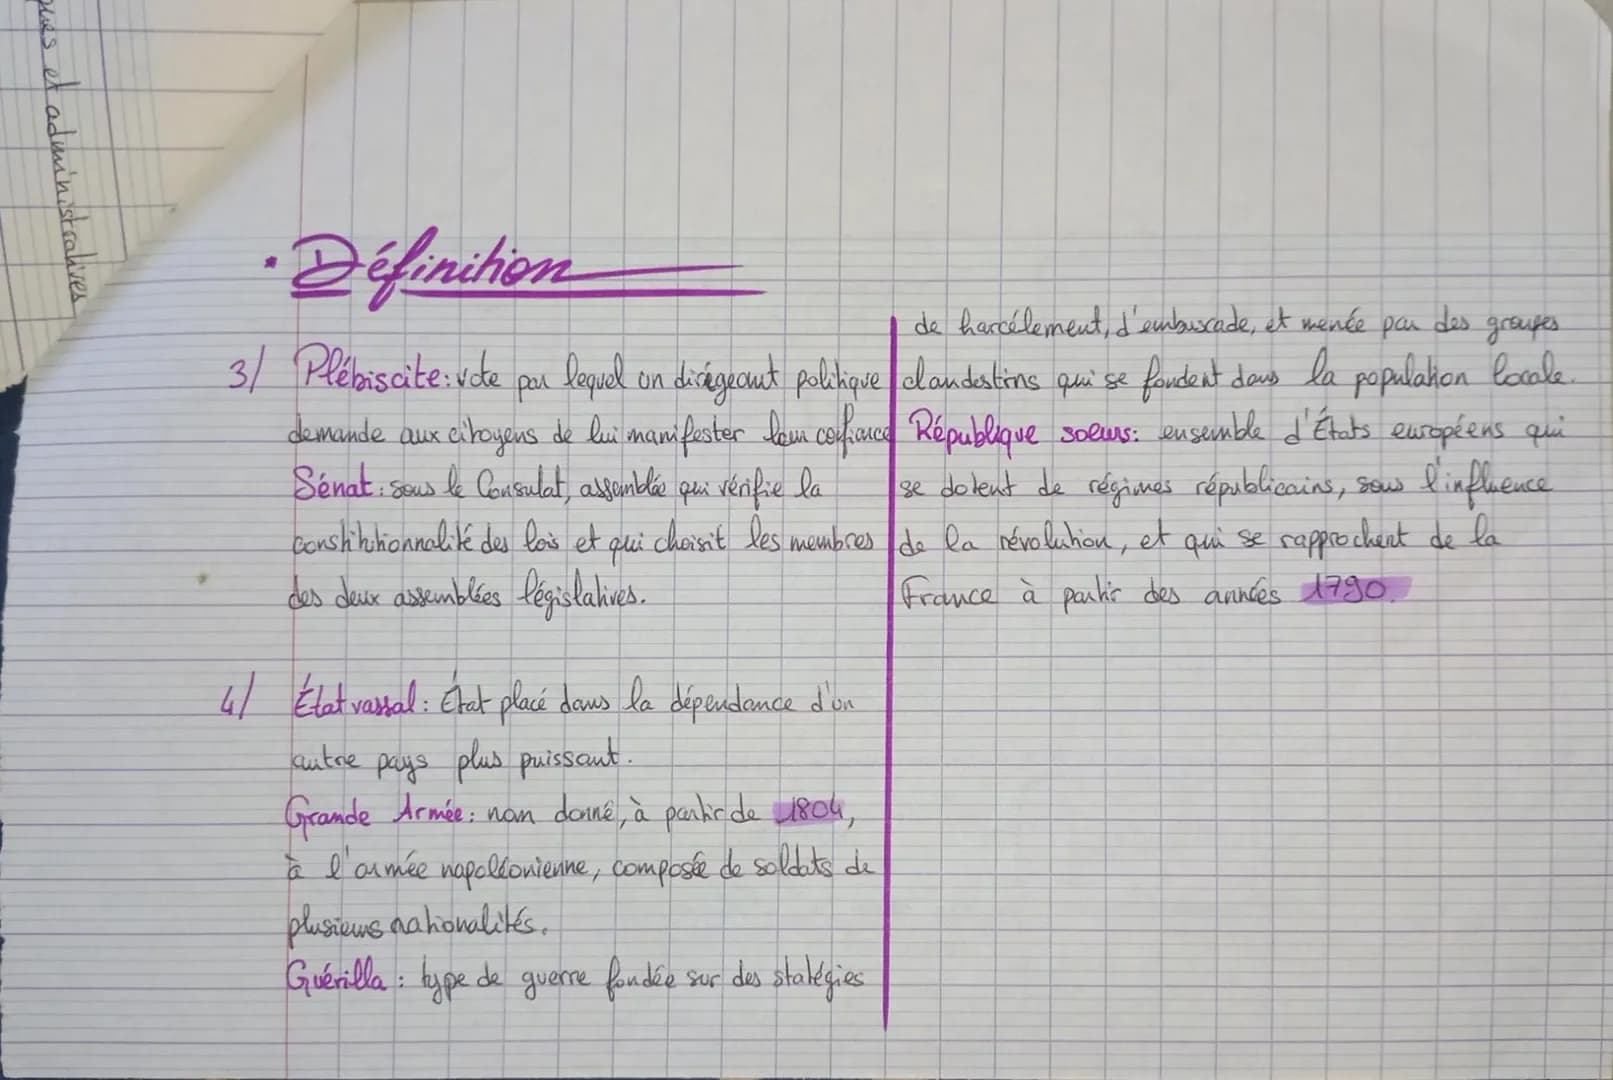 ques et administratives
• Définition
3/ Plébiscite: vote par lequel un dirigeant politique
demande aux citoyens de lui manifester leur confiance
Sénat: sous le Consulat, assemblée qui vérifie la
constitutionnalité des lois et qui choisit les membres
des deux assemblées législatives.
4/ État vassal: État placé dans la dépendance d'un
autre pays plus puissant.
Grande Armée: nom donné, à partir de 1804,
à l'armée napoléonienne, composée de soldats de
plusieurs nationalités.
Guérilla: type de guerre fondée sur des statégies
de harcélement, d'embuscade, et menée par des groupes
clandestins qui se fondent dans la population locale.
République soeurs: ensemble d'États européens qui
se dotent de régimes républicains, sous l'influence
de la révolution, et qui se rapprochent de la
France à partir des années 1790.